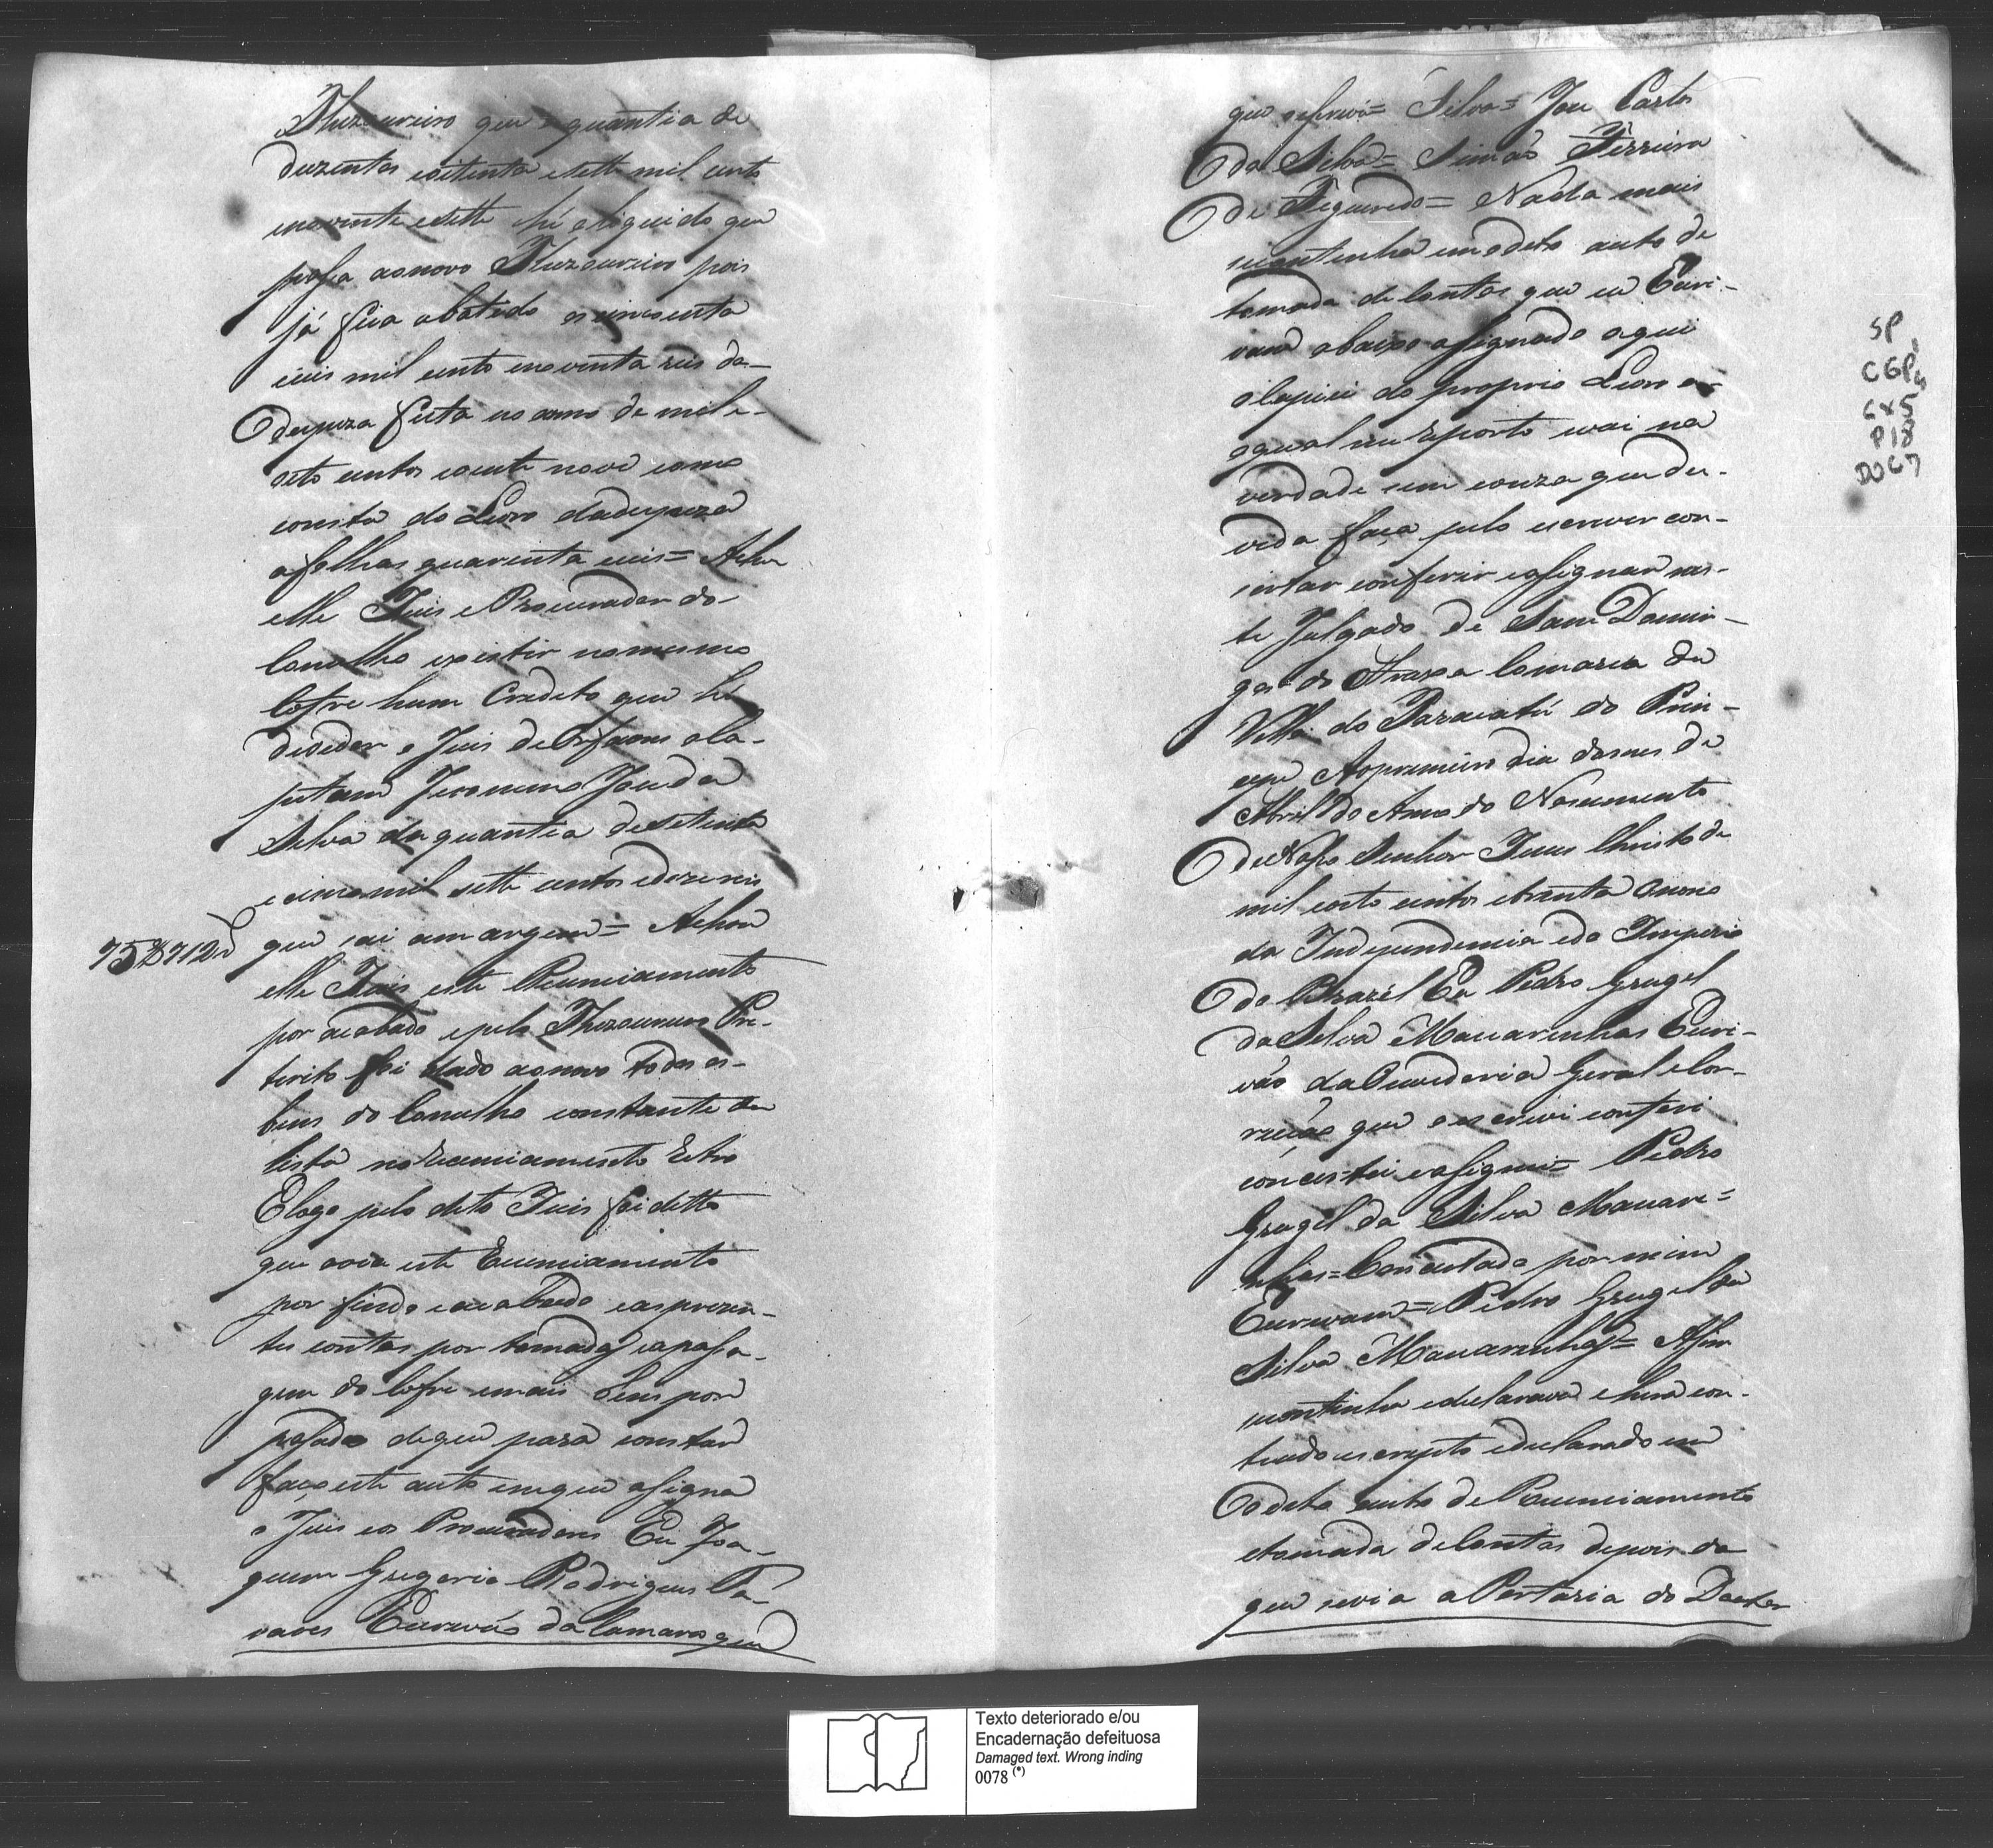 Thuzoureiro que a quantia de
duzentos eoitenta esette mil cento
enoventa esette hé oliquido que
passa aonovo Thuzoureiro pois
já fica abatido cincoenta
ceis mil cento enoventa reis da
despeza feita no anno de mile
oito centos evinte nove como
consta do Livro dadespeza
afolhas quarenta eceis = Achou
elle Juis e Procurador do
Concelho existir nomesmo
Cofre hum Credito que hé
devedor o Juis de Orfaons o Ca-
pitam Jeronimo Joze da
Silva da quantia desetenta
ecincomil sette centos edoze reis
que sai amargem = Achou
75$712
elle Juis este Recenciamento
por acabado epelo Thezoureiro Pre-
terito foi dado aonovo todos os
bens do Concelho constante da
lista no recenciamento Retro
Elogo pelo dito Juis foi ditto
que avia este Recenciamento
por findo eacabado easprezen-
tes contas por tomadas eapassa-
gem do Cofre emais bens por
passados deque para constar
faço este auto emque assigna
o Juis eos Procuradores Eu Joa-
quim Gregorio Rodrigues Ta-
vares Escrivão da Camara que
que escrevi = Silva = Joze Carlos
da Silva = Simão Ferreira
de Figueredo = Nada mais
secontinha emodito auto de
tomada de Contas que eu Escri-
vam abaixo assignado aqui
copiei do proprio Livro
aoqual me reporto evai na
verdade sem couza que du-
vida faça pelo escrever con-
certar conferir eassignar nes-
te Julgado de Sam Domin-
gos do Araxa Comarca da
Villa do Paracatú do Prin-
cipe Aoprimeiro dia domes de
Abril do Anno do Nascimento
de Nosso Senhor Jezus Christo de
mil eoito centos etrinta Nono
da Independencia edo Imperio
do Brazil Eu Pedro Grugel
da Silva Mascarenhas Escri-
vão da Ouvedoria Geral eCor-
reição que o escrevi conferi
concertei eassignei = Pedro
Grugel da Silva Mascare =
nhas = Concertado por mim
Escrivam = Pedro Grugel da
Silva Mascarenhas = Assim
secontinha edeclarava ehera con-
teudo escripto edeclarado em
odito auto de Recenciamento
etomada de Contas depois do
que sevia a Portaria do Doutor
SP
CGP
Cx5
P18
DOC7
Texto deteriorado e/ou
Encadernação defeituosa
Damaged text. Wrong inding
0078 (*)